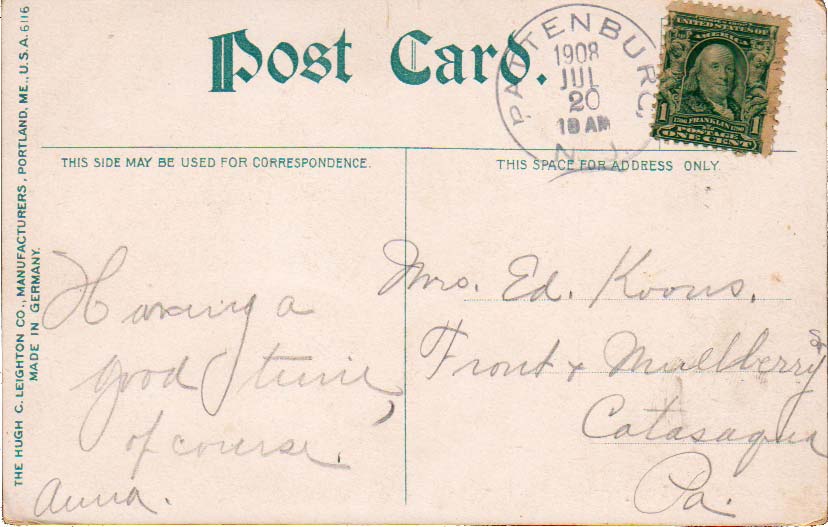 Post Card.
PATTENBURG,
1908
JUL
20
10 AM
N.J.
UNITED STATES OF
AMERICA
1 1706 FRANKLIN 1790 1
POSTAGE
ONE CENT
THIS SIDE MAY BE USED FOR CORRESPONDENCE.
THIS SPACE FOR ADDRESS ONLY.
THE HUGH C. LEIGHTON CO., MANUFACTURERS, PORTLAND, ME., U.S.A. 6116
MADE IN GERMANY.
Having a
good time,
of course.
Anna.
Mrs. Ed. Koons.
Front & Mullberry St
Catasaqua
Pa.